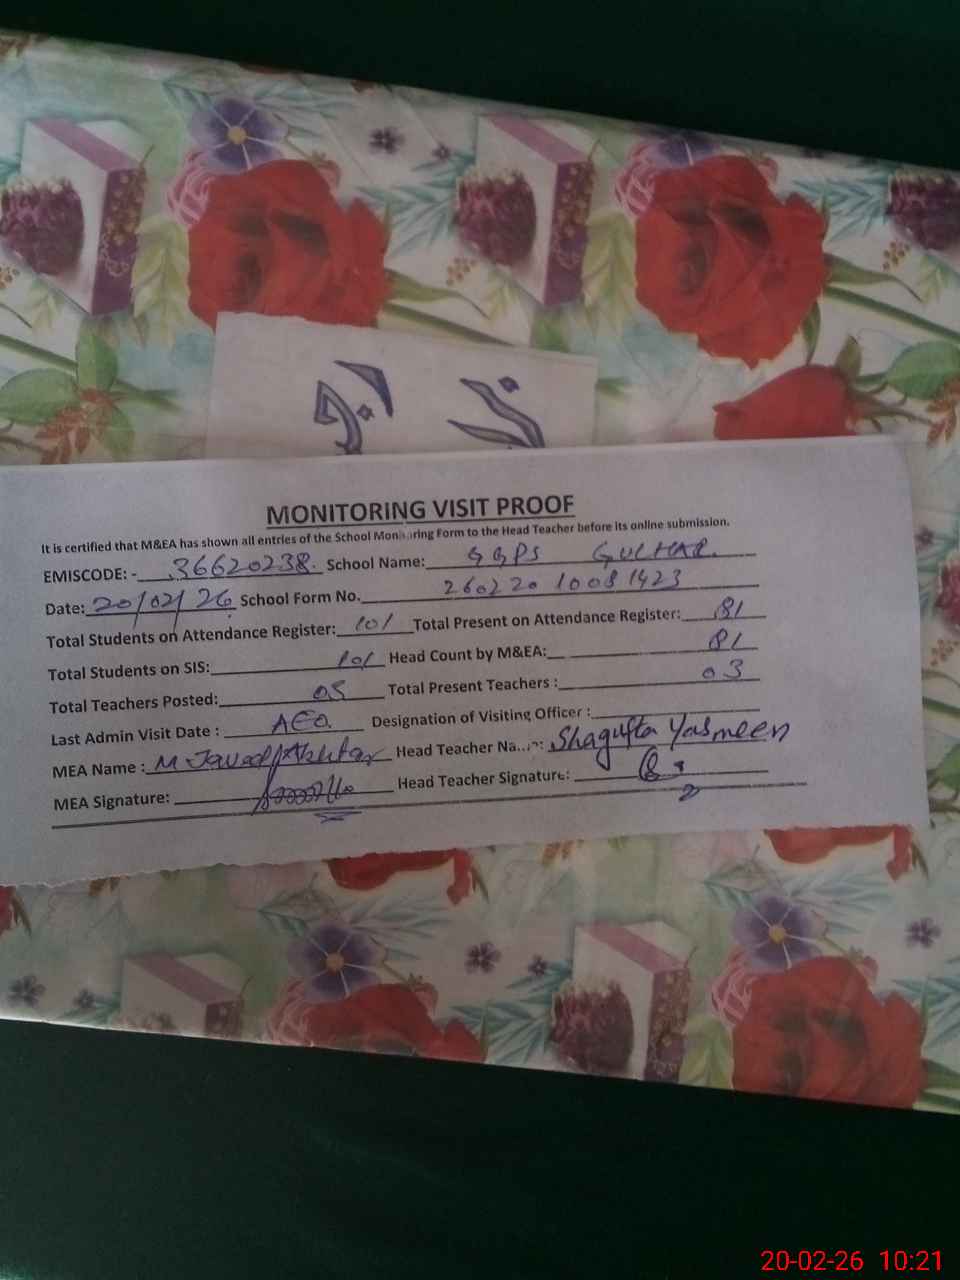 MONITORING VISIT PROOF
It is certified that M&EA has shown all entries of the School Monitoring Form to the Head Teacher before its online submission.
EMISCODE: - 36620238. School Name: GGPS GULHAR.
Date: 20/02/26 School Form No. 26022010081423
Total Students on Attendance Register: 101 Total Present on Attendance Register: 81
Total Students on SIS: 101 Head Count by M&EA: 81
Total Teachers Posted: 05 Total Present Teachers : 03
Last Admin Visit Date : AEO. Designation of Visiting Officer :
MEA Name : M Javed Akhtar Head Teacher Na...: Shagufta Yasmeen
MEA Signature: Head Teacher Signature:
20-02-26 10:21